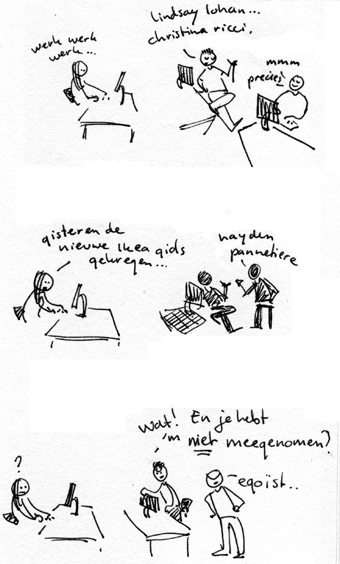 werk werk
werk...
lindsay lohan...
christina ricci.
mmm
precies
gisteren de
nieuwe Ikea gids
gekregen...
hayden
pannetiere
wat! En je hebt
'm niet meegenomen?
?
egoïst..